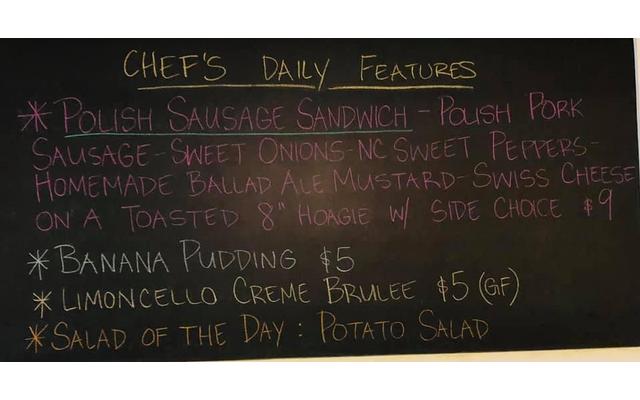 CHEF'S DAILY FEATURES
* POLISH SAUSAGE SANDWICH - POLISH PORK
SAUSAGE - SWEET ONIONS - NC SWEET PEPPERS -
HOMEMADE BALLAD ALE MUSTARD - SWISS CHEESE
ON A TOASTED 8" HOAGIE W/ SIDE CHOICE $9
* BANANA PUDDING $5
* LIMONCELLO CREME BRULEE $5 (GF)
* SALAD OF THE DAY : POTATO SALAD